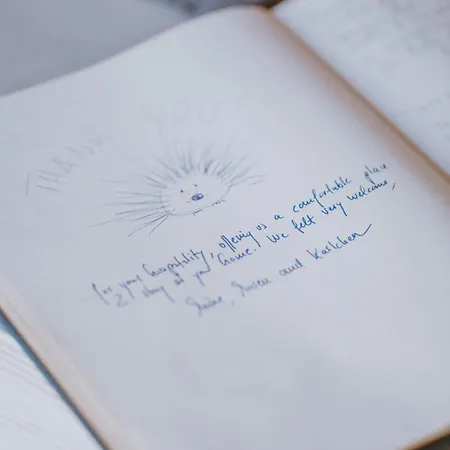 THANK YOU
for your hospitality, offering us a comfortable place
2 stay at your home! We felt very welcome,
and